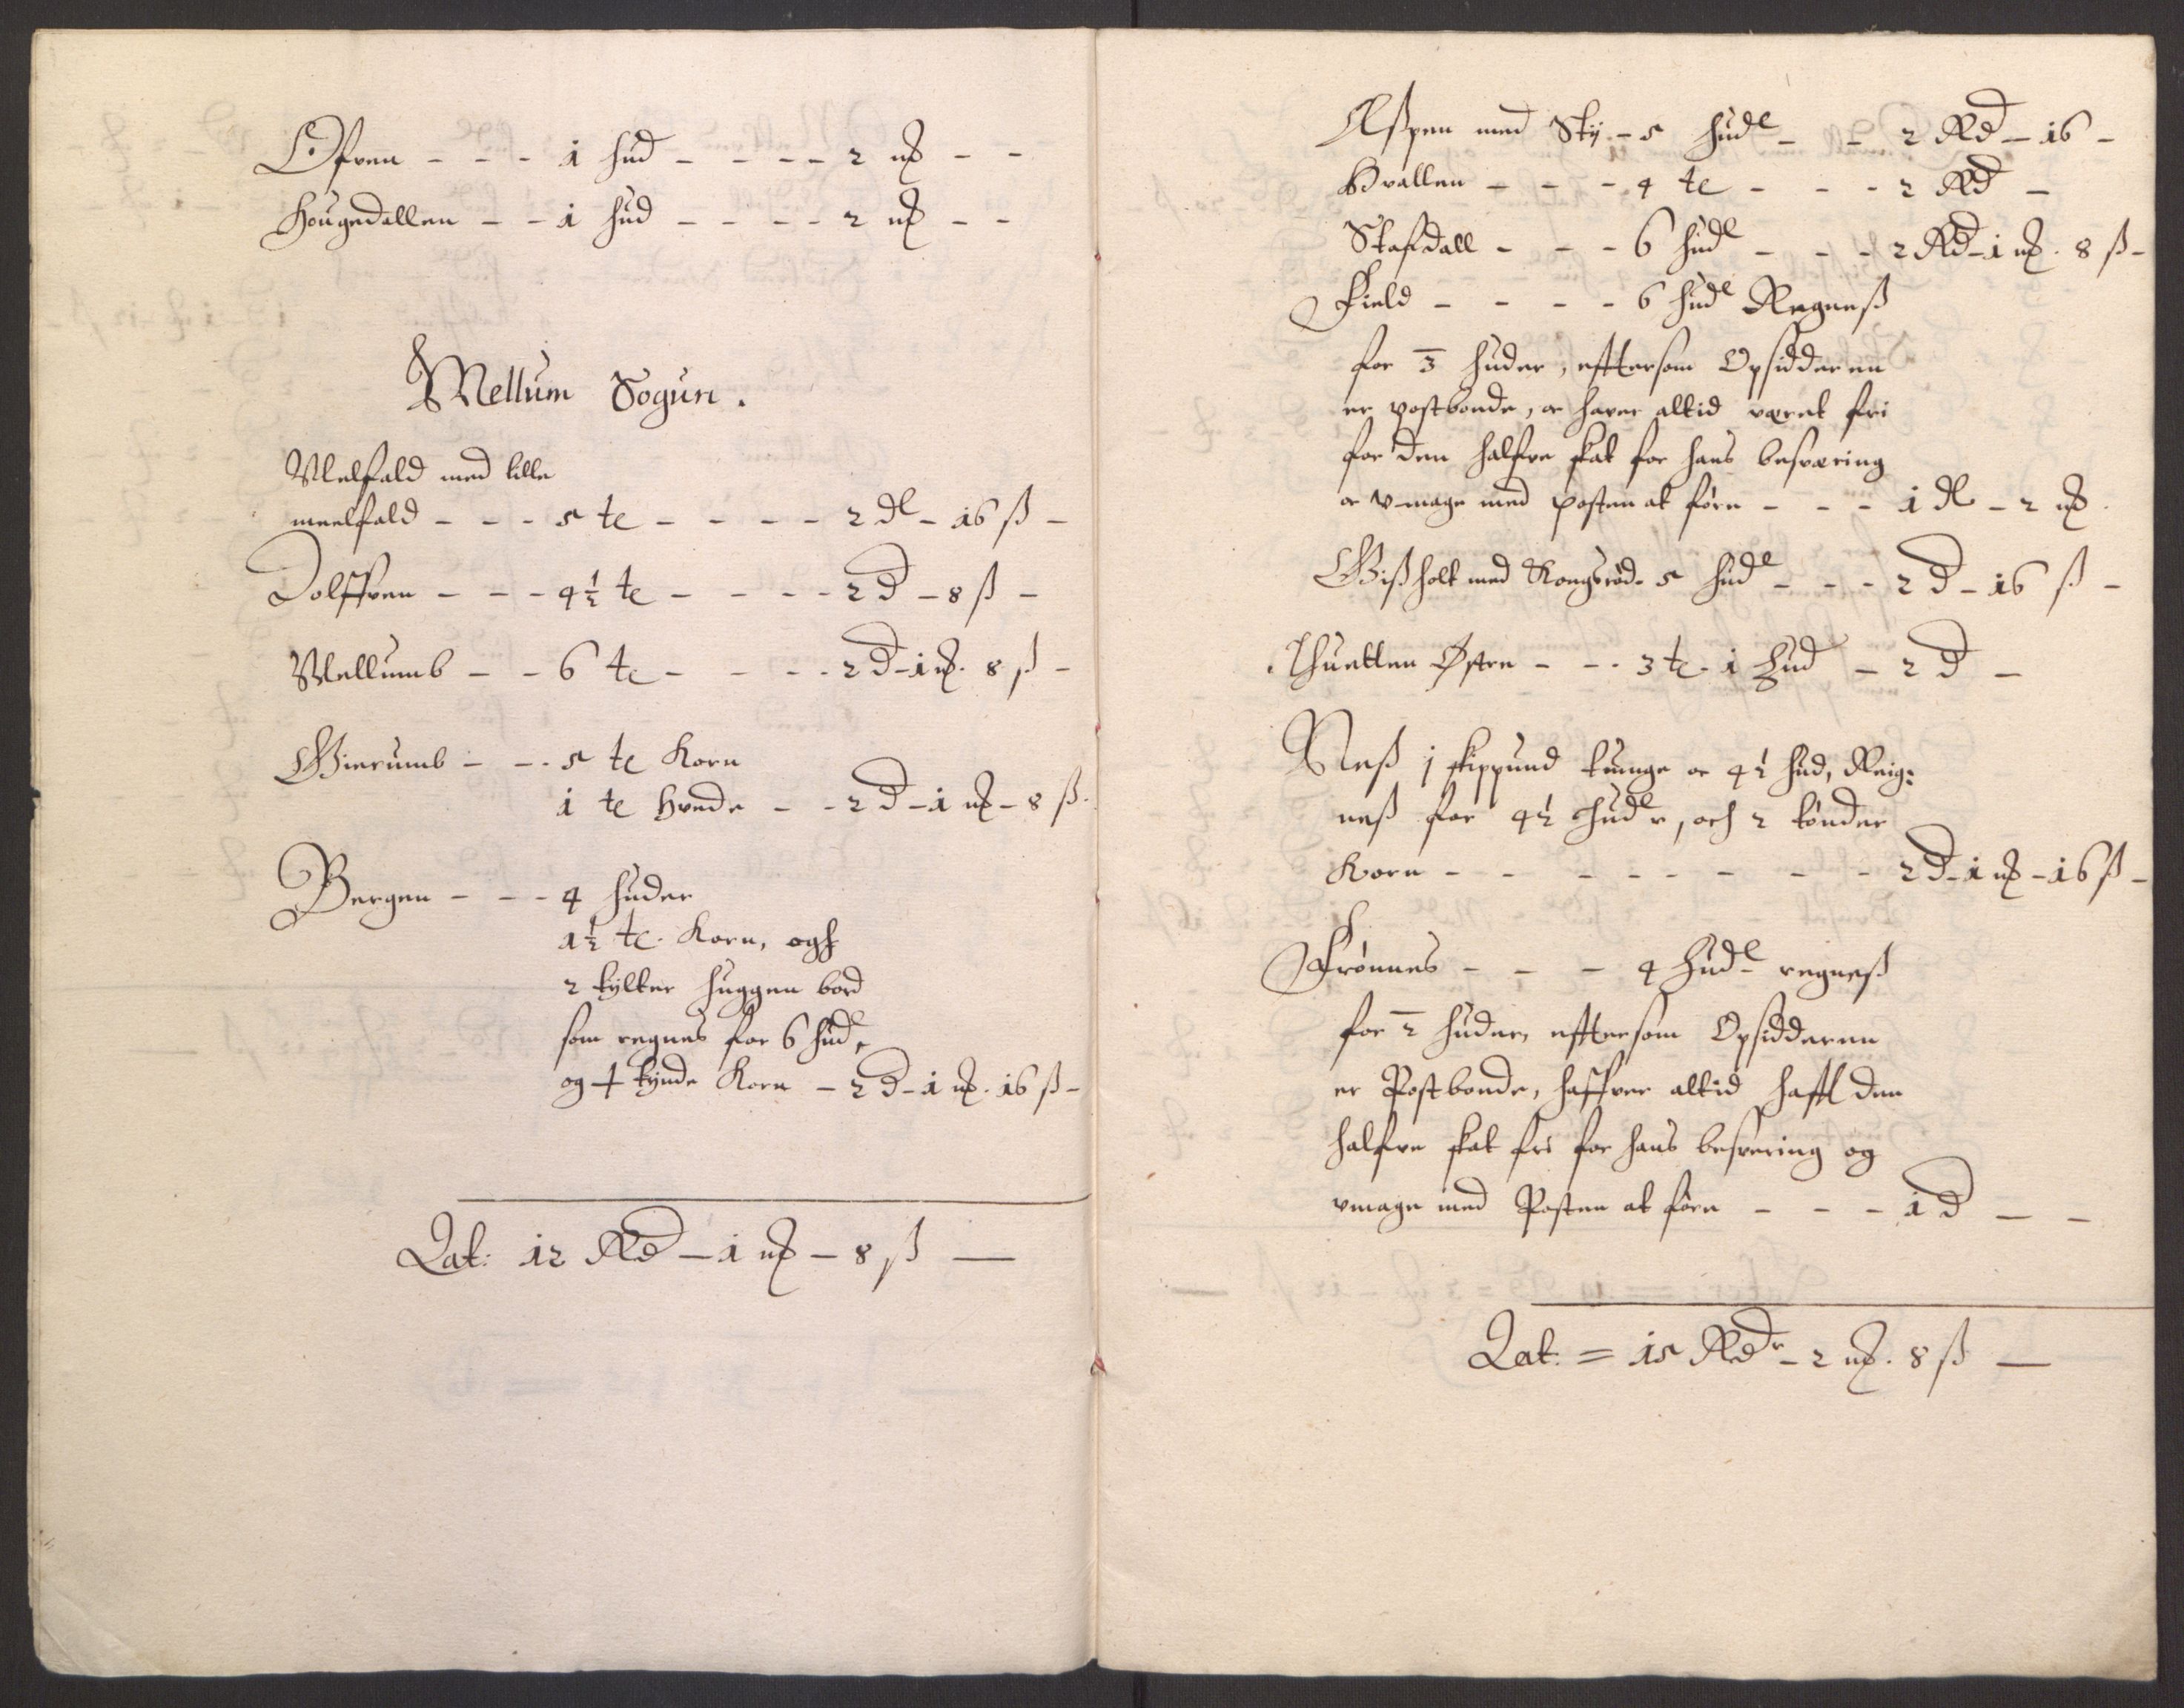 Ofven - - - 1 hud - - - - 2 mk - -
Hougedallen - - 1 hud - - - - 2 mk - -
Mellum Sogun.
Melfald med lille
meelfald - - - 5 te - - - - 2 dl - 16 ß -
Dolffven - - - 4½ te - - - - 2 d - 8 ß -
Mellumb - - 6 te - - - - 2 d - 1 mk. 8 ß -
Gierumb - - - 5 te Korn
1 te Hvede - - 2 d - 1 mk - 8 ß.
Bergen - - - 4 huder
1½ te. Korn, ogh
2 tylter huggen bord
som regnes for 6 hudl
og ½ tynde Korn - 2 d - 1 mk. 16 ß -
Lat: 12 Rd - 1 mk - 8 ß -
Aßpen med Skij - 5 hudl - - 2 Rd - 16 -
Hvallen - - - 4 te - - - 2 Rd -
Skafdall - - - 6 hudl - - - 2 Rd - 1 mk. 8 ß -
Field - - - - 6 hudl Regneß
for 3 huder, efftersom Opsidderen
er postbonde, oc haver altid veret fri
for den halfve skat for hans besvering
oc Vmage med posten at føre - - - 1 dl - 2 mk.
Gißholt med Kongsrød - 5 hudl - - - 2 d - 16 ß -
Thuetten Østre - - - 3 te. 1 Hud - 2 d -
Neß j skippund tunge oc 4½ hud, Reig:
neß for 4½ hudl r, och 2 tønder
Korn - - - - - - - - 2 d - 1 mk - 16 ß -
Frønnes - - - 4 Hudl regneß
for 2 huder, efftersom Opsidderen
er Postbonde, haffver altid hafft den
halfve skat fri for hans besvering og
vmage med Posten at føre - - - 1 d - -
Lat. = 15 Rdr - 2 mk. 8 ß -